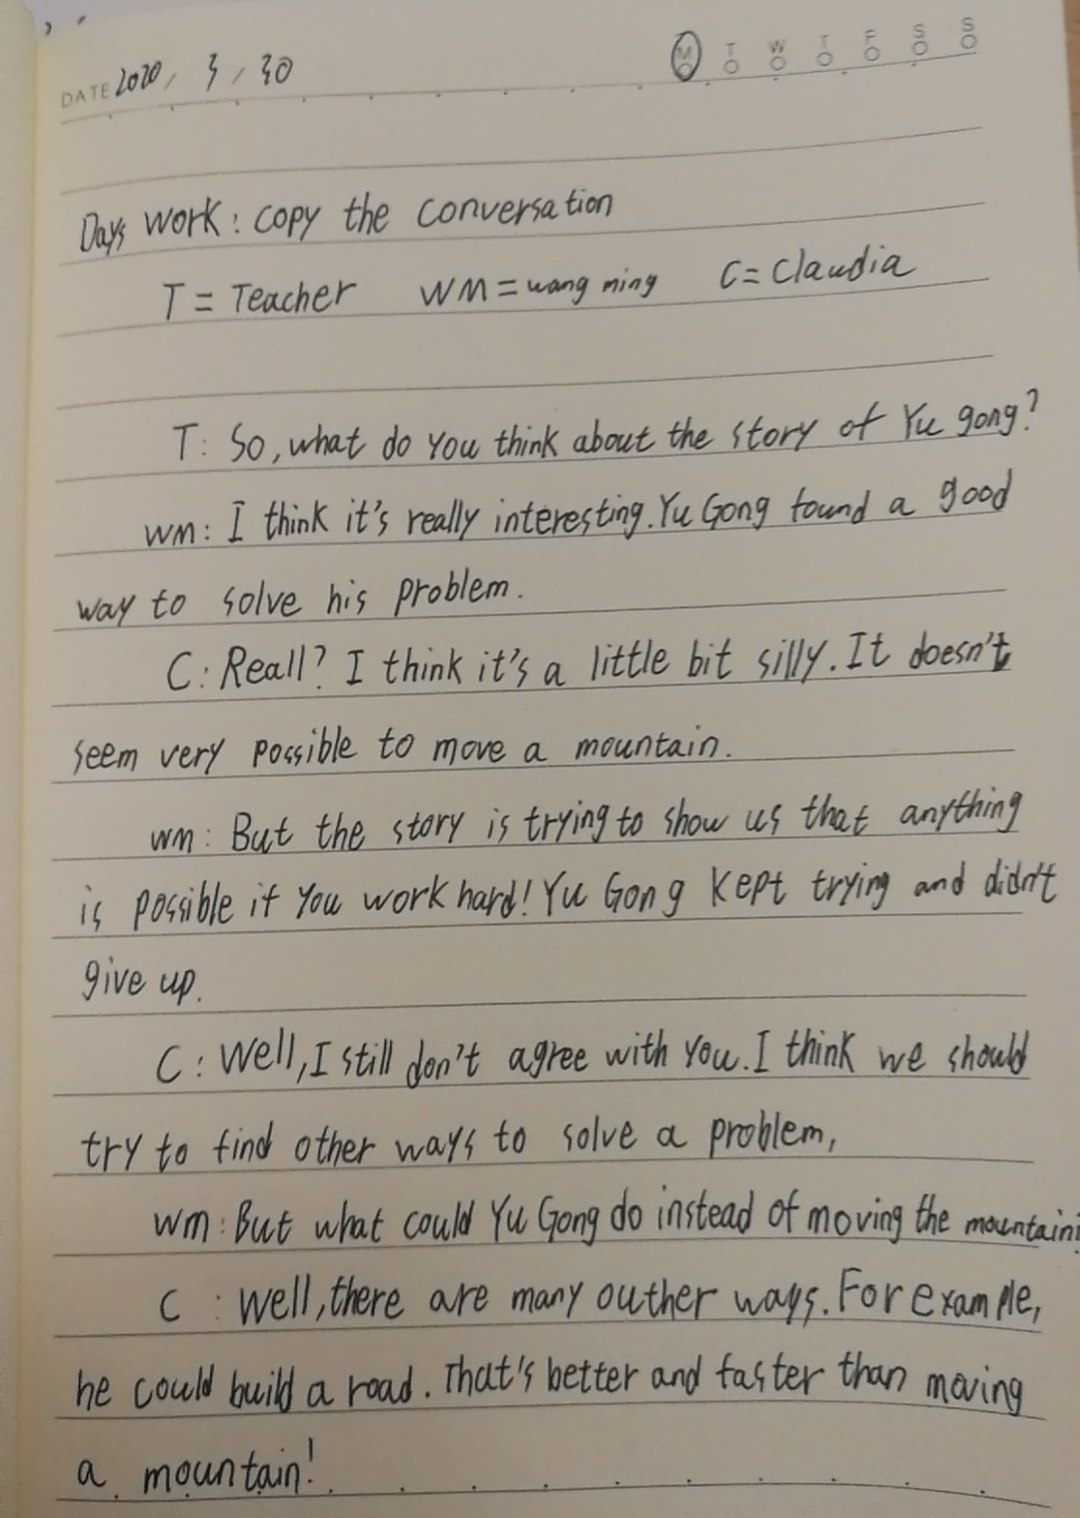 DATE 2020 / 3 / 30 M T W T F S S
Days work: copy the conversation
T = Teacher WM = wang ming C = Claudia
T: So, what do you think about the story of Yu gong?
wm: I think it's really interesting. Yu Gong found a good
way to solve his problem.
C: Reall? I think it's a little bit silly. It doesn't
seem very possible to move a mountain.
wm: But the story is trying to show us that anything
is possible if you work hard! Yu Gong kept trying and didn't
give up.
C: Well, I still don't agree with you. I think we should
try to find other ways to solve a problem,
wm: But what could Yu Gong do instead of moving the mountain
C: Well, there are many outher ways. For example,
he could build a road. That's better and faster than moving
a mountain!